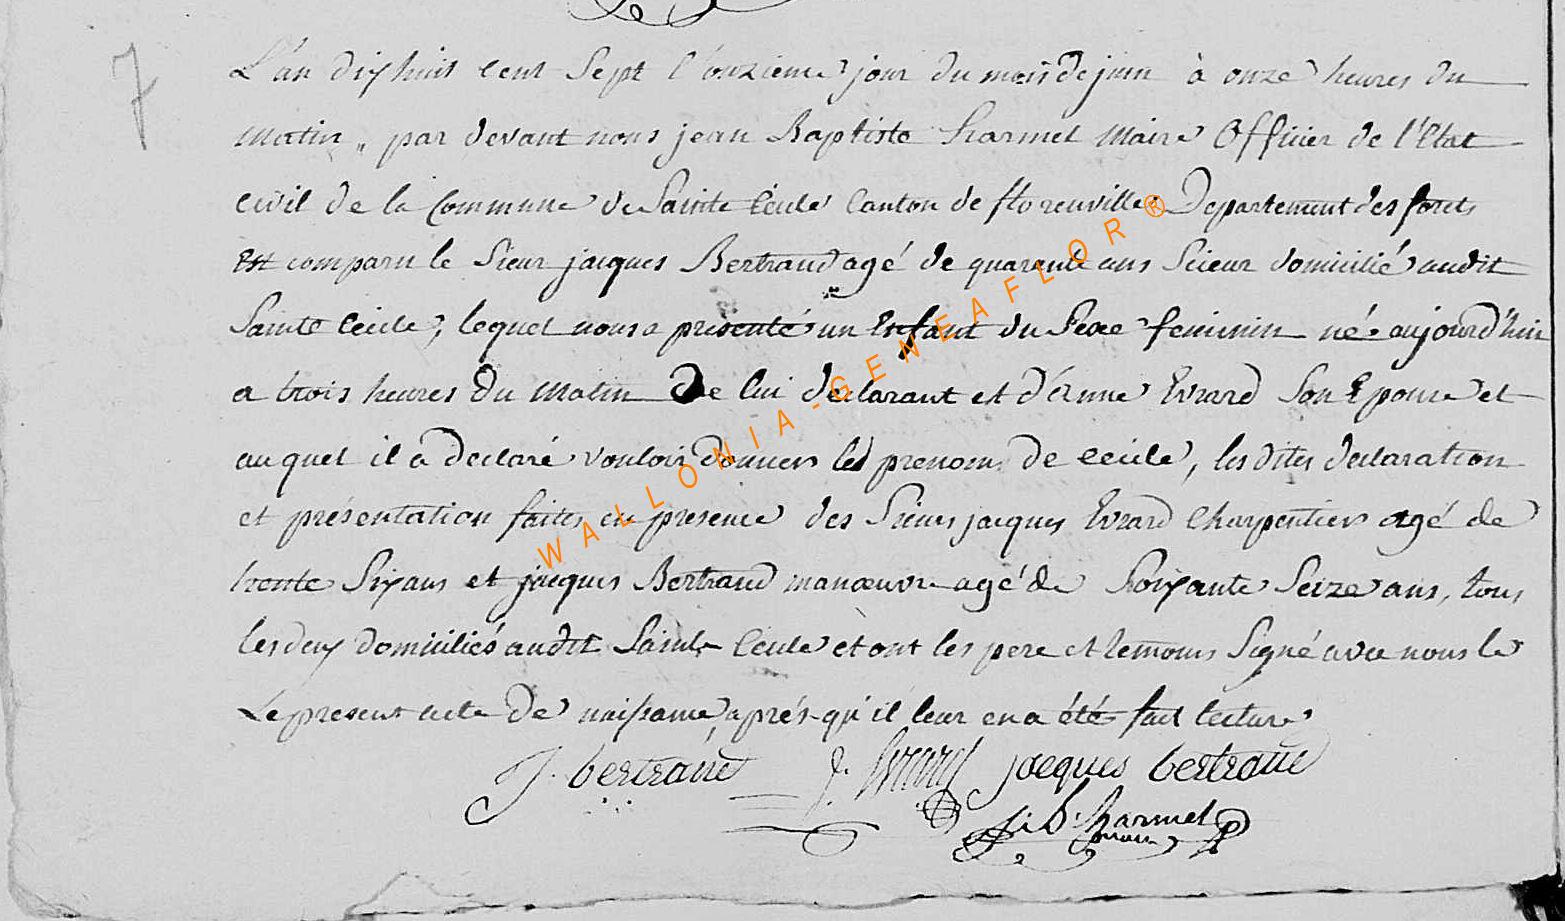 7
L'an dix huit cent Sept l'onzieme jour du mois de juin à onze heures du
Matin, par devant nous jean Baptiste Harmel Maire Officier de l'Etat
civil de la Commune de Sainte Cécile Canton de florenville Departement des forets
Est comparu le Sieur jacques Bertrand agé de quarente ans Scieur domicilié audit
Sainte Cécile, lequel nous a présenté un Enfant du Sexe feminin né aujourd'hui
a trois heures du Matin de lui declarant et d'Anne Evrard Son Epouse et
auquel il a declaré vouloir donner les prenoms de Cécile, les dites declaration
et présentation faites en presence des Sieurs jacques Evrard Charpentier agé de
trente Six ans et jacques Bertrand manœuvre agé de Soixante Seize ans, tous
les deux domiciliés audit Sainte Cecile et ont les pere et temoins Signé avec nous le
Le present acte de naissance, aprés qu'il leur en a été fait lecture
J. bertrand J. Evrard jacques bertrand
J: B: Harmel
maire
WALLONIA-GENEAFLOR®